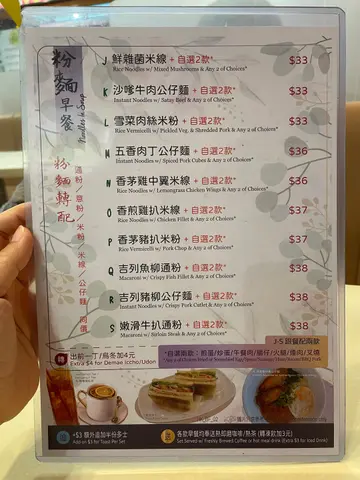 粉麵早餐
Noodles in Soup
粉麵轉配
溫粉／意粉／米粉／米線／公仔麵 同價
J 鮮雜菌米線 + 自選2款* $33
Rice Noodles w/ Mixed Mushrooms & Any 2 of Choices*
K 沙嗲牛肉公仔麵 + 自選2款* $33
Instant Noodles w/ Satay Beef & Any 2 of Choices*
L 雪菜肉絲米粉 + 自選2款* $33
Rice Vermicelli w/ Pickled Veg. & Shredded Pork & Any 2 of Choices*
M 五香肉丁公仔麵 + 自選2款* $36
Instant Noodles w/ Spiced Pork Cubes & Any 2 of Choices*
N 香茅雞中翼米線 + 自選2款* $36
Rice Noodles w/ Lemongrass Chicken Wings & Any 2 of Choices*
O 香煎雞扒米線 + 自選2款* $37
Rice Noodles w/ Chicken Fillet & Any 2 of Choices*
P 香茅豬扒米粉 + 自選2款* $37
Rice Vermicelli w/ Pork Chop & Any 2 of Choices*
Q 吉列魚柳通粉 + 自選2款* $38
Macaroni w/ Crispy Fish Fillet & Any 2 of Choices*
R 吉列豬柳公仔麵 + 自選2款* $38
Instant Noodles w/ Crispy Pork Cutlet & Any 2 of Choices*
S 嫩滑牛扒通粉 + 自選2款* $38
Macaroni w/ Sirloin Steak & Any 2 of Choices*
J-S 跟餐配兩款
轉 出前一丁/烏冬加4元
Extra $4 for Demae Iccho/Udon
*自選兩款：煎蛋/炒蛋/午餐肉/腸仔/火腿/雞肉/叉燒
+$3 額外追加半份多士
Add on $3 for Toast Per Set
各款早餐均奉送熱即磨咖啡/熱茶 (轉凍飲加3元)
Set Served w/ Freshly Brewed Coffee or hot meal drink (Extra $3 for Iced Drink)